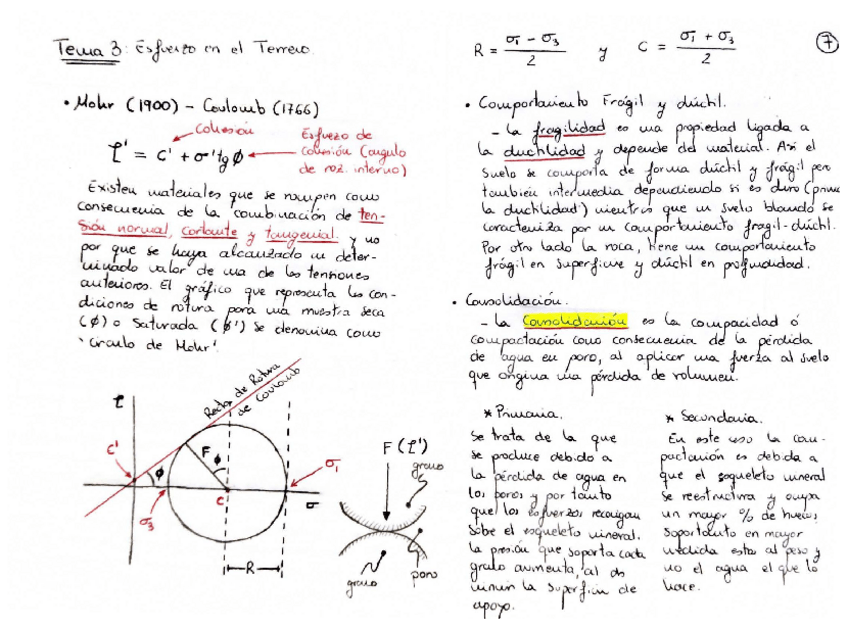 Tema 3: Esfuerzo en el Terreno.
• Mohr (1900) – Coulomb (1766)
Cohesión
Esfuerzo de
cohesión (angulo
de roz. interno)
τ' = c' + σ' tg ϕ
Existen materiales que se rompen como
consecuencia de la combinación de ten-
sión normal, cortante y tangencial. y no
por que se haya alcanzado un deter-
minado valor de una de las tensiones
anteriores. El gráfico que representa las con-
diciones de rotura para una muestra seca
(ϕ) o saturada (ϕ') se denomina como
'círculo de Mohr'.
τ
Recta de Rotura
de Coulomb
c'
ϕ
F
ϕ
σ1
σ3
c
σ
R
F (τ')
grano
grano
poro
R = σ1 - σ3 / 2 y C = σ1 + σ3 / 2
7
• Comportamiento Frágil y dúctil.
– La fragilidad es una propiedad ligada a
la ductilidad y depende del material. Asi el
suelo se comporta de forma dúctil y frágil pero
tambien intermedia dependiendo si es duro (prima
la ductilidad) mientras que un suelo blando se
caracteriza por un comportamiento fragil-dúctil.
Por otro lado la roca, tiene un comportamiento
frágil en superficie y dúctil en profundidad.
• Consolidación.
– La Consolidación es la compacidad ó
compactación como consecuencia de la pérdida
de agua en poro, al aplicar una fuerza al suelo
que origina una pérdida de volumen.
* Primaria.
Se trata de la que
se produce debido a
la pérdida de agua en
los poros y por tanto
que los esfuerzos recaigan
sobe el esqueleto mineral.
la presión que soporta cada
grano aumenta, al dis
minuir la superficie de
apoyo.
* Secundaria.
En este caso la com-
pactación es debida a
que el esqueleto mineral
se reestructura y ocupa
un mayor % de huecos,
soportanto en mayor
medida estos al peso y
no el agua el que lo
hace.